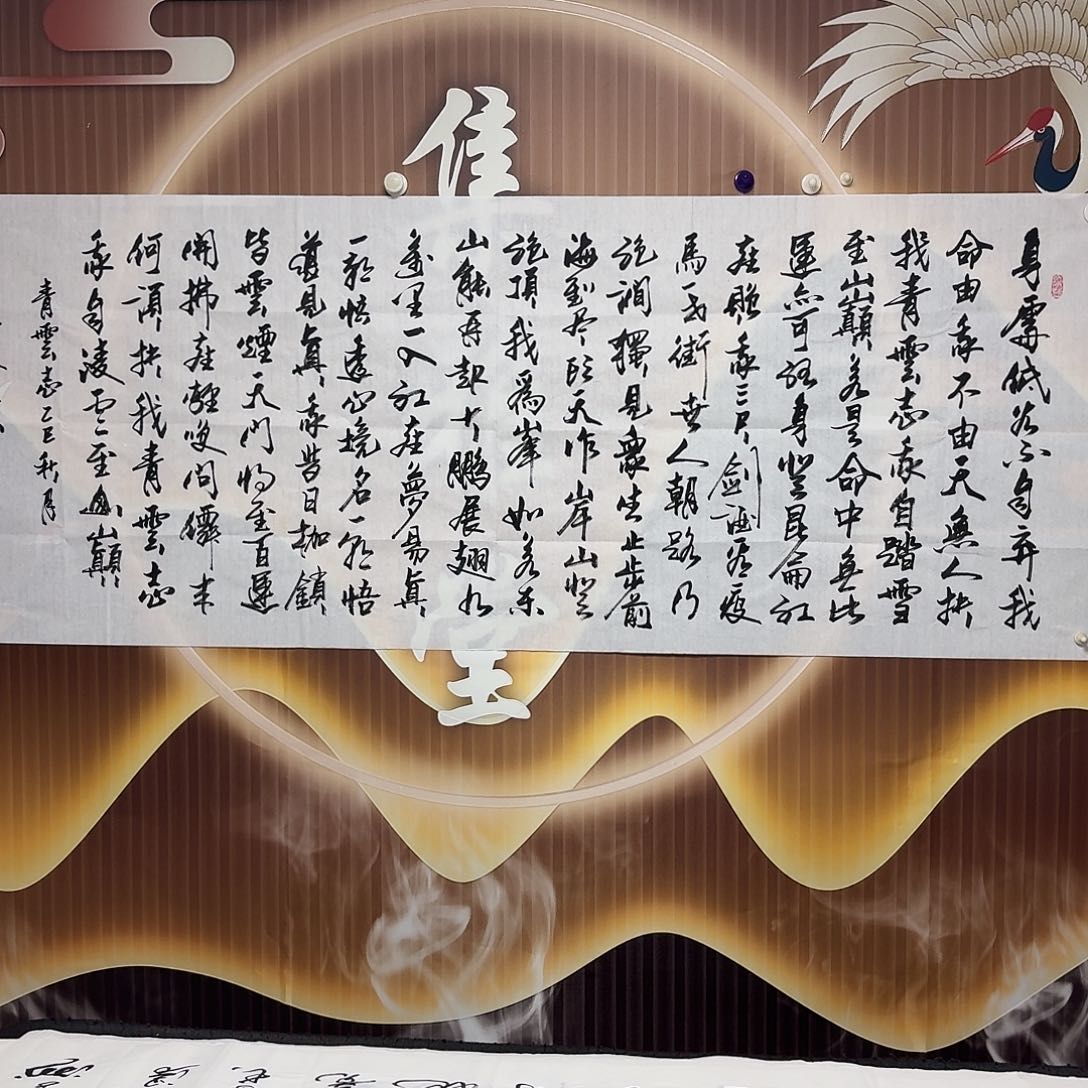 身處低谷不自弃我
命由我不由天無人扶
我青雲志我自踏雪
至山巔若是命中無此
運亦可孤身登昆侖紅
塵賜我三尺劍酒瘦
馬街世人朝路乃
絶澗獨見衆生止步前
海到尽頭天作岸山登
絶頂我爲峯如若东
山能再起大鵬展翅九
萬里一入紅塵夢易真
一朝悟透心境名一朝悟
道見真我昔日枷鎖
皆雲煙天門將至百運
開拂塵輕笑問僊來
何須扶我青雲志
我自凌雲至山巔
青雲志乙巳秋月
佳
堂